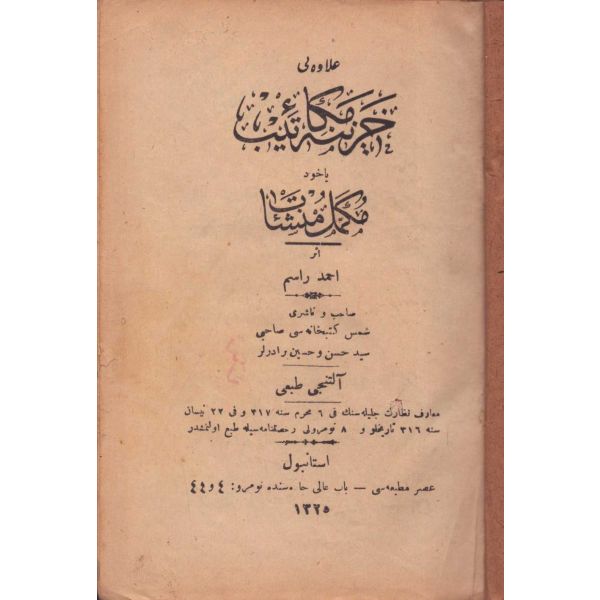 علاوه لی
خزینهٔ مکاتیب
یاخود
مکمل منشآت
اثر
احمد راسم
صاحب و ناشری
شمس کتبخانه سی صاحبی
سید حسن و حسین برادرلر
آلتنجی طبعی
معارف نظارت جلیله سنك فی ٦ محرم سنه ٣١٧ و فی ٢٣ نیسان
سنه ٣١٦ تاریخلو و ٨ نومرولی رخصتنامه سیله طبع اولنمشدر
استانبول
عصر مطبعه سی — باب عالی جاده سنده نومرو: ٤ و ٤٤
١٣٢٥